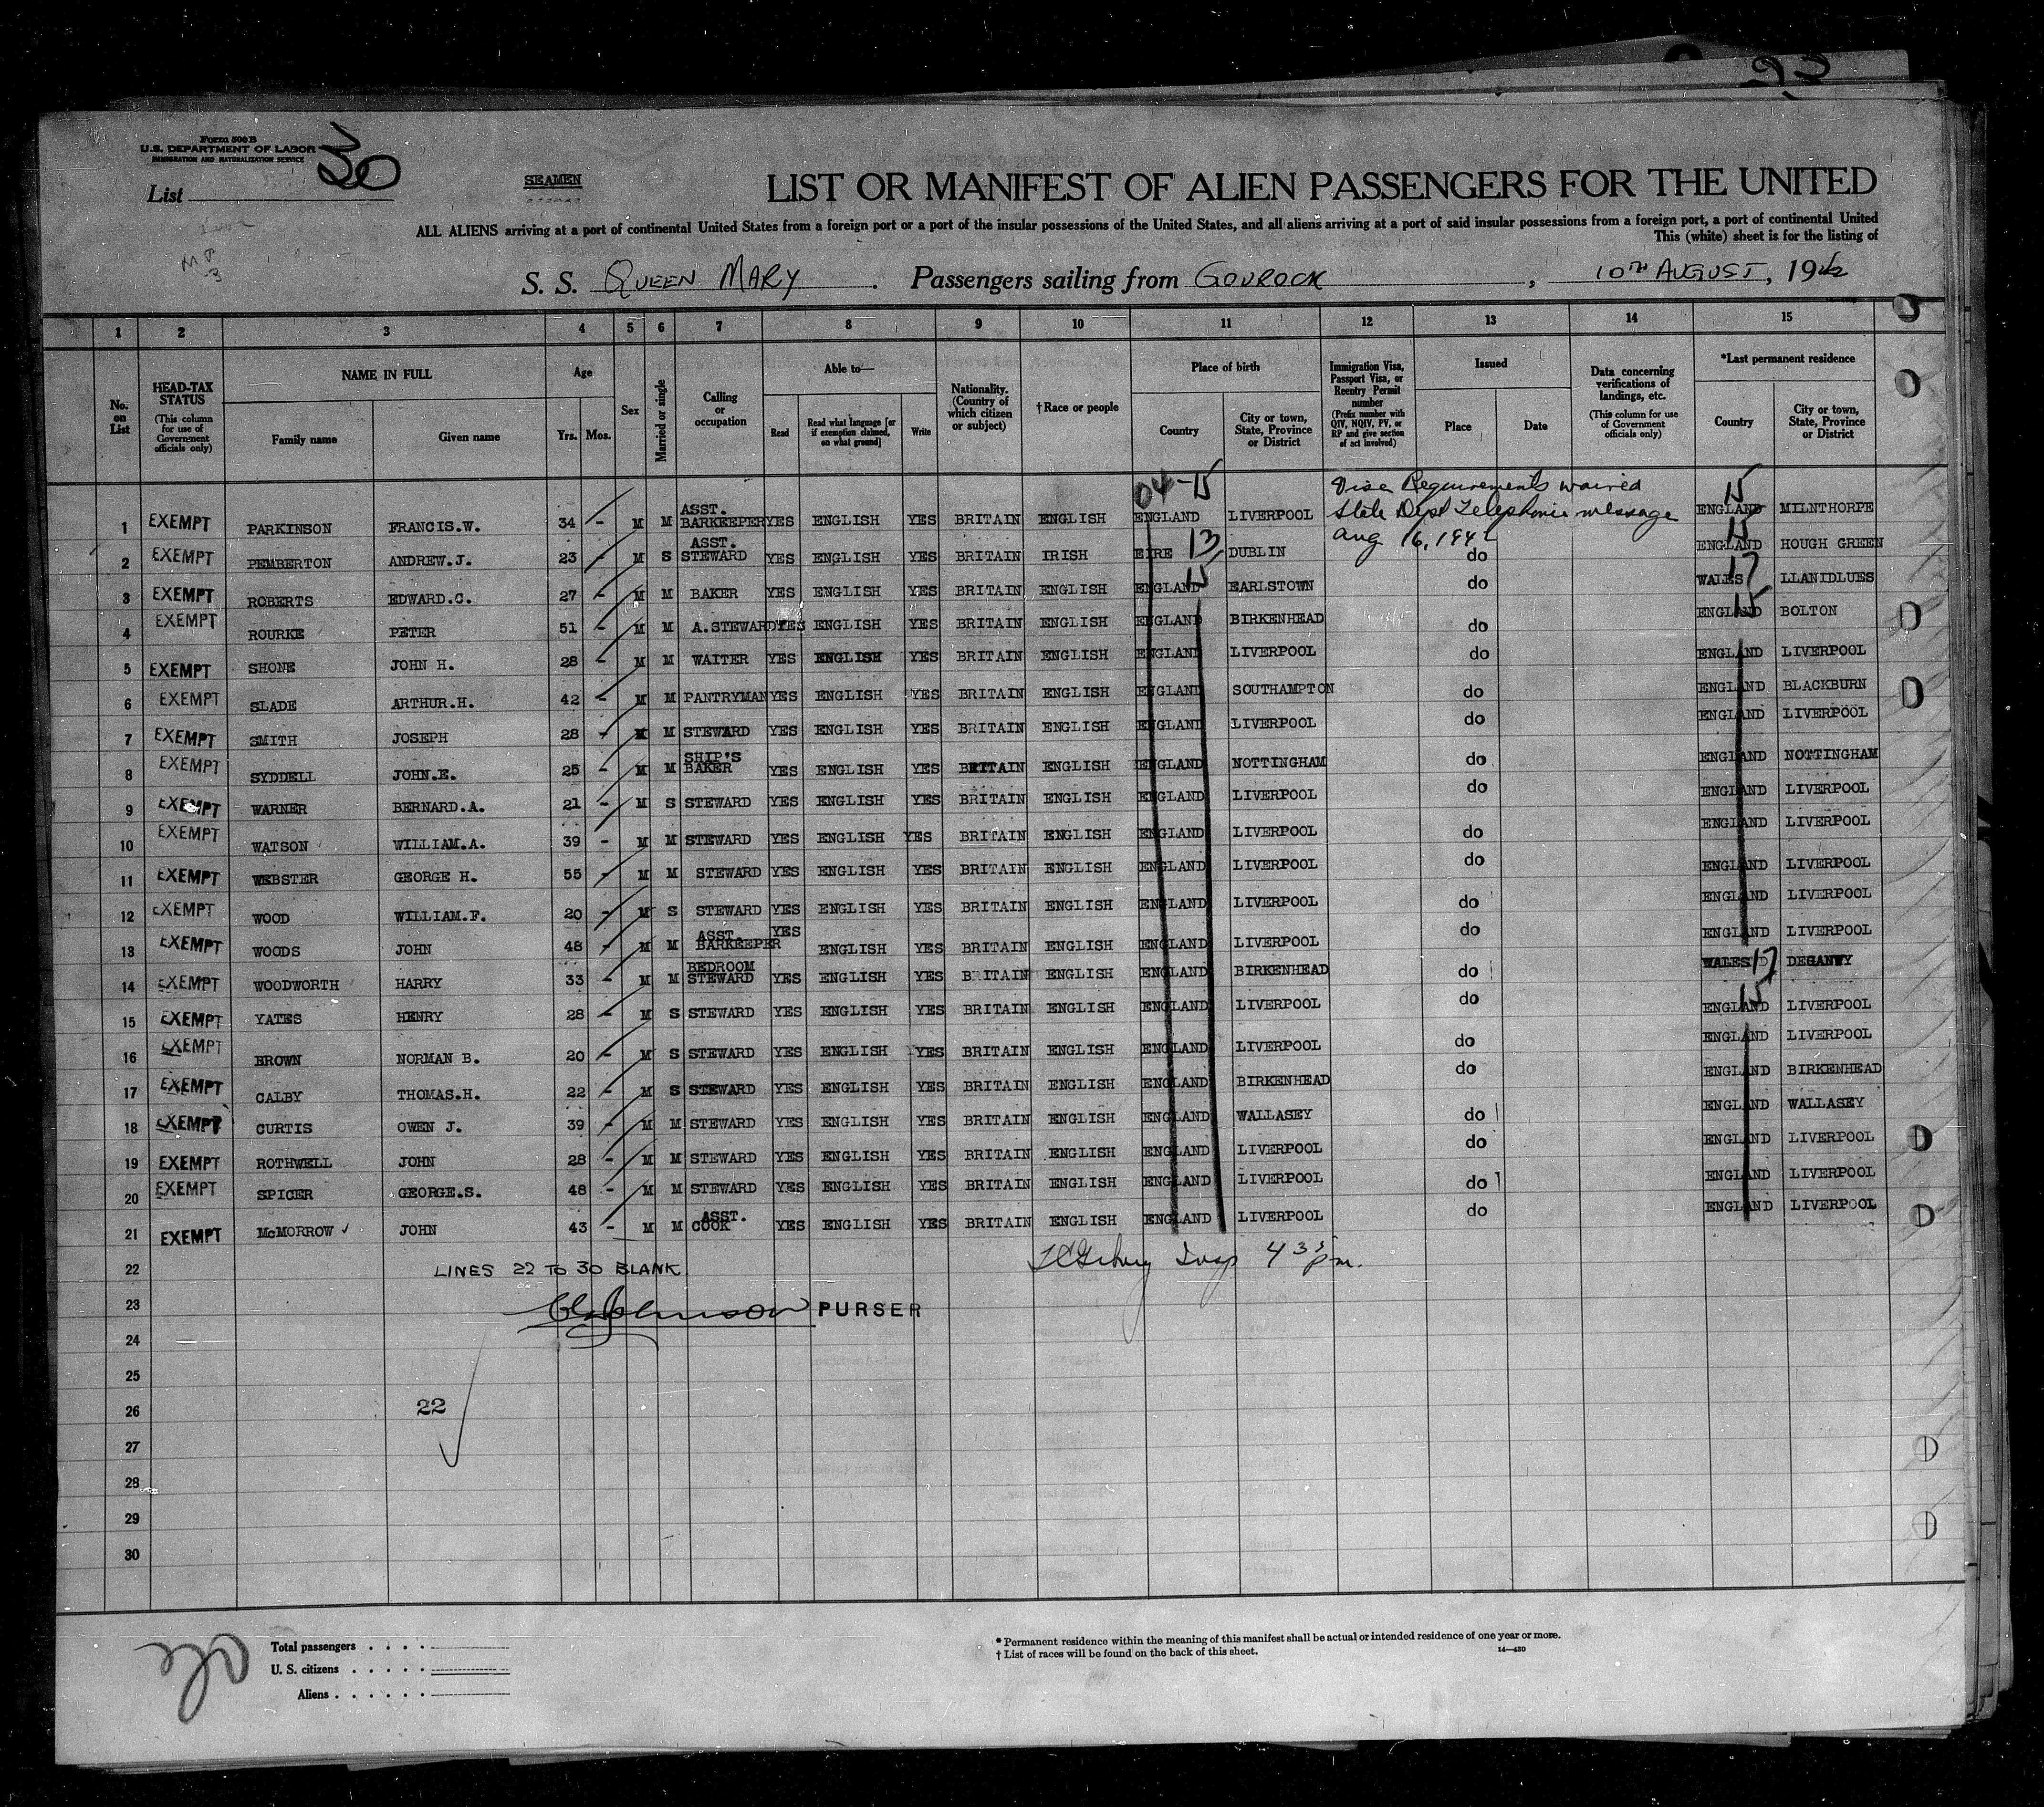 Form 500B
U.S. DEPARTMENT OF LABOR
IMMIGRATION AND NATURALIZATION SERVICE
List 30
SEAMEN
LIST OR MANIFEST OF ALIEN PASSENGERS FOR THE UNITED
ALL ALIENS arriving at a port of continental United States from a foreign port or a port of the insular possessions of the United States, and all aliens arriving at a port of said insular possessions from a foreign port, a port of continental United
This (white) sheet is for the listing of
S. S. QUEEN MARY . Passengers sailing from GOUROCK , 10TH AUGUST, 1942
1 2 3 4 5 6 7 8 9 10 11 12 13 14 15
No. on List
HEAD-TAX STATUS (This column for use of Government officials only)
NAME IN FULL Family name Given name
Age Yrs. Mos.
Sex
Married or single
Calling or occupation
Able to— Read Read what language [or if exemption claimed, on what ground] Write
Nationality. (Country of which citizen or subject)
†Race or people
Place of birth Country City or town, State, Province or District
Immigration Visa, Passport Visa, or Reentry Permit number (Prefix number with QIV, NQIV, PV, or RP and give section of act involved)
Issued Place Date
Data concerning verifications of landings, etc. (This column for use of Government officials only)
*Last permanent residence Country City or town, State, Province or District
04-15
Visa Requirements waived
State Dept Telephonic message
Aug 16, 1942
1 EXEMPT PARKINSON FRANCIS.W. 34 - M M ASST. BARKEEPER YES ENGLISH YES BRITAIN ENGLISH ENGLAND LIVERPOOL ENGLAND 15 MILNTHORPE
2 EXEMPT PEMBERTON ANDREW.J. 23 - M S ASST. STEWARD YES ENGLISH YES BRITAIN IRISH EIRE 13 DUBLIN do ENGLAND 15 HOUGH GREEN
3 EXEMPT ROBERTS EDWARD.C. 27 - M M BAKER YES ENGLISH YES BRITAIN ENGLISH ENGLAND 15 EARLSTOWN do WALES 17 LLANIDLUES
4 EXEMPT ROURKE PETER 51 - M M A.STEWARD YES ENGLISH YES BRITAIN ENGLISH ENGLAND BIRKENHEAD do ENGLAND 15 BOLTON
5 EXEMPT SHONE JOHN H. 28 - M M WAITER YES ENGLISH YES BRITAIN ENGLISH ENGLAND LIVERPOOL do ENGLAND LIVERPOOL
6 EXEMPT SLADE ARTHUR.H. 42 - M M PANTRYMAN YES ENGLISH YES BRITAIN ENGLISH ENGLAND SOUTHAMPTON do ENGLAND BLACKBURN
7 EXEMPT SMITH JOSEPH 28 - M M STEWARD YES ENGLISH YES BRITAIN ENGLISH ENGLAND LIVERPOOL do ENGLAND LIVERPOOL
8 EXEMPT SYDDELL JOHN.E. 25 - M M SHIP'S BAKER YES ENGLISH YES BRITAIN ENGLISH ENGLAND NOTTINGHAM do ENGLAND NOTTINGHAM
9 EXEMPT WARNER BERNARD.A. 21 - M S STEWARD YES ENGLISH YES BRITAIN ENGLISH ENGLAND LIVERPOOL do ENGLAND LIVERPOOL
10 EXEMPT WATSON WILLIAM.A. 39 - M M STEWARD YES ENGLISH YES BRITAIN ENGLISH ENGLAND LIVERPOOL do ENGLAND LIVERPOOL
11 EXEMPT WEBSTER GEORGE H. 55 - M M STEWARD YES ENGLISH YES BRITAIN ENGLISH ENGLAND LIVERPOOL do ENGLAND LIVERPOOL
12 EXEMPT WOOD WILLIAM.F. 20 - M S STEWARD YES ENGLISH YES BRITAIN ENGLISH ENGLAND LIVERPOOL do ENGLAND LIVERPOOL
13 EXEMPT WOODS JOHN 48 - M M ASST. BARKEEPER YES ENGLISH YES BRITAIN ENGLISH ENGLAND LIVERPOOL do ENGLAND LIVERPOOL
14 EXEMPT WOODWORTH HARRY 33 - M M BEDROOM STEWARD YES ENGLISH YES BRITAIN ENGLISH ENGLAND BIRKENHEAD do WALES 17 DEGANWY
15 EXEMPT YATES HENRY 28 - M S STEWARD YES ENGLISH YES BRITAIN ENGLISH ENGLAND LIVERPOOL do ENGLAND 15 LIVERPOOL
16 EXEMPT BROWN NORMAN B. 20 - M S STEWARD YES ENGLISH YES BRITAIN ENGLISH ENGLAND LIVERPOOL do ENGLAND LIVERPOOL
17 EXEMPT CALBY THOMAS.H. 22 - M S STEWARD YES ENGLISH YES BRITAIN ENGLISH ENGLAND BIRKENHEAD do ENGLAND BIRKENHEAD
18 EXEMPT CURTIS OWEN J. 39 - M M STEWARD YES ENGLISH YES BRITAIN ENGLISH ENGLAND WALLASEY do ENGLAND WALLASEY
19 EXEMPT ROTHWELL JOHN 28 - M M STEWARD YES ENGLISH YES BRITAIN ENGLISH ENGLAND LIVERPOOL do ENGLAND LIVERPOOL
20 EXEMPT SPICER GEORGE.S. 48 - M M STEWARD YES ENGLISH YES BRITAIN ENGLISH ENGLAND LIVERPOOL do ENGLAND LIVERPOOL
21 EXEMPT McMORROW ✓ JOHN 43 - M M ASST. COOK YES ENGLISH YES BRITAIN ENGLISH ENGLAND LIVERPOOL do ENGLAND LIVERPOOL
22 LINES 22 TO 30 BLANK Insp 4 35 pm.
23 PURSER
24
25
26 22
27
28
29
30
30
Total passengers . . . .
U. S. citizens . . . . .
Aliens . . . . . .
* Permanent residence within the meaning of this manifest shall be actual or intended residence of one year or more.
† List of races will be found on the back of this sheet.
14—430